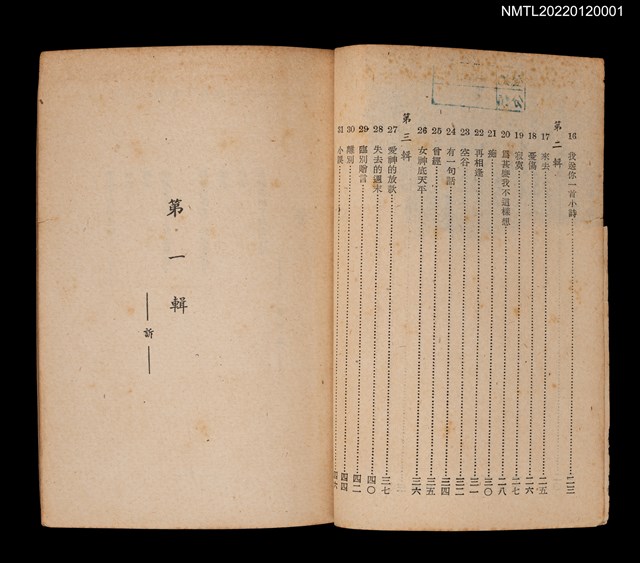 NMTL20220120001
16 我送你一首小詩 二三
第二輯
17 來去 二五
18 憂傷 二六
19 寂寞 二七
20 爲甚麼我不這樣想 二八
21 三〇
22 再相逢 三一
23 空谷 三二
24 有一句話 三四
25 曾經 三五
26 女神底天平 三六
第三輯
27 愛神的放歌 三七
28 失去的週末 四〇
29 臨別贈言 四二
30 離別 四四
31 小溪
第一輯
——訴——